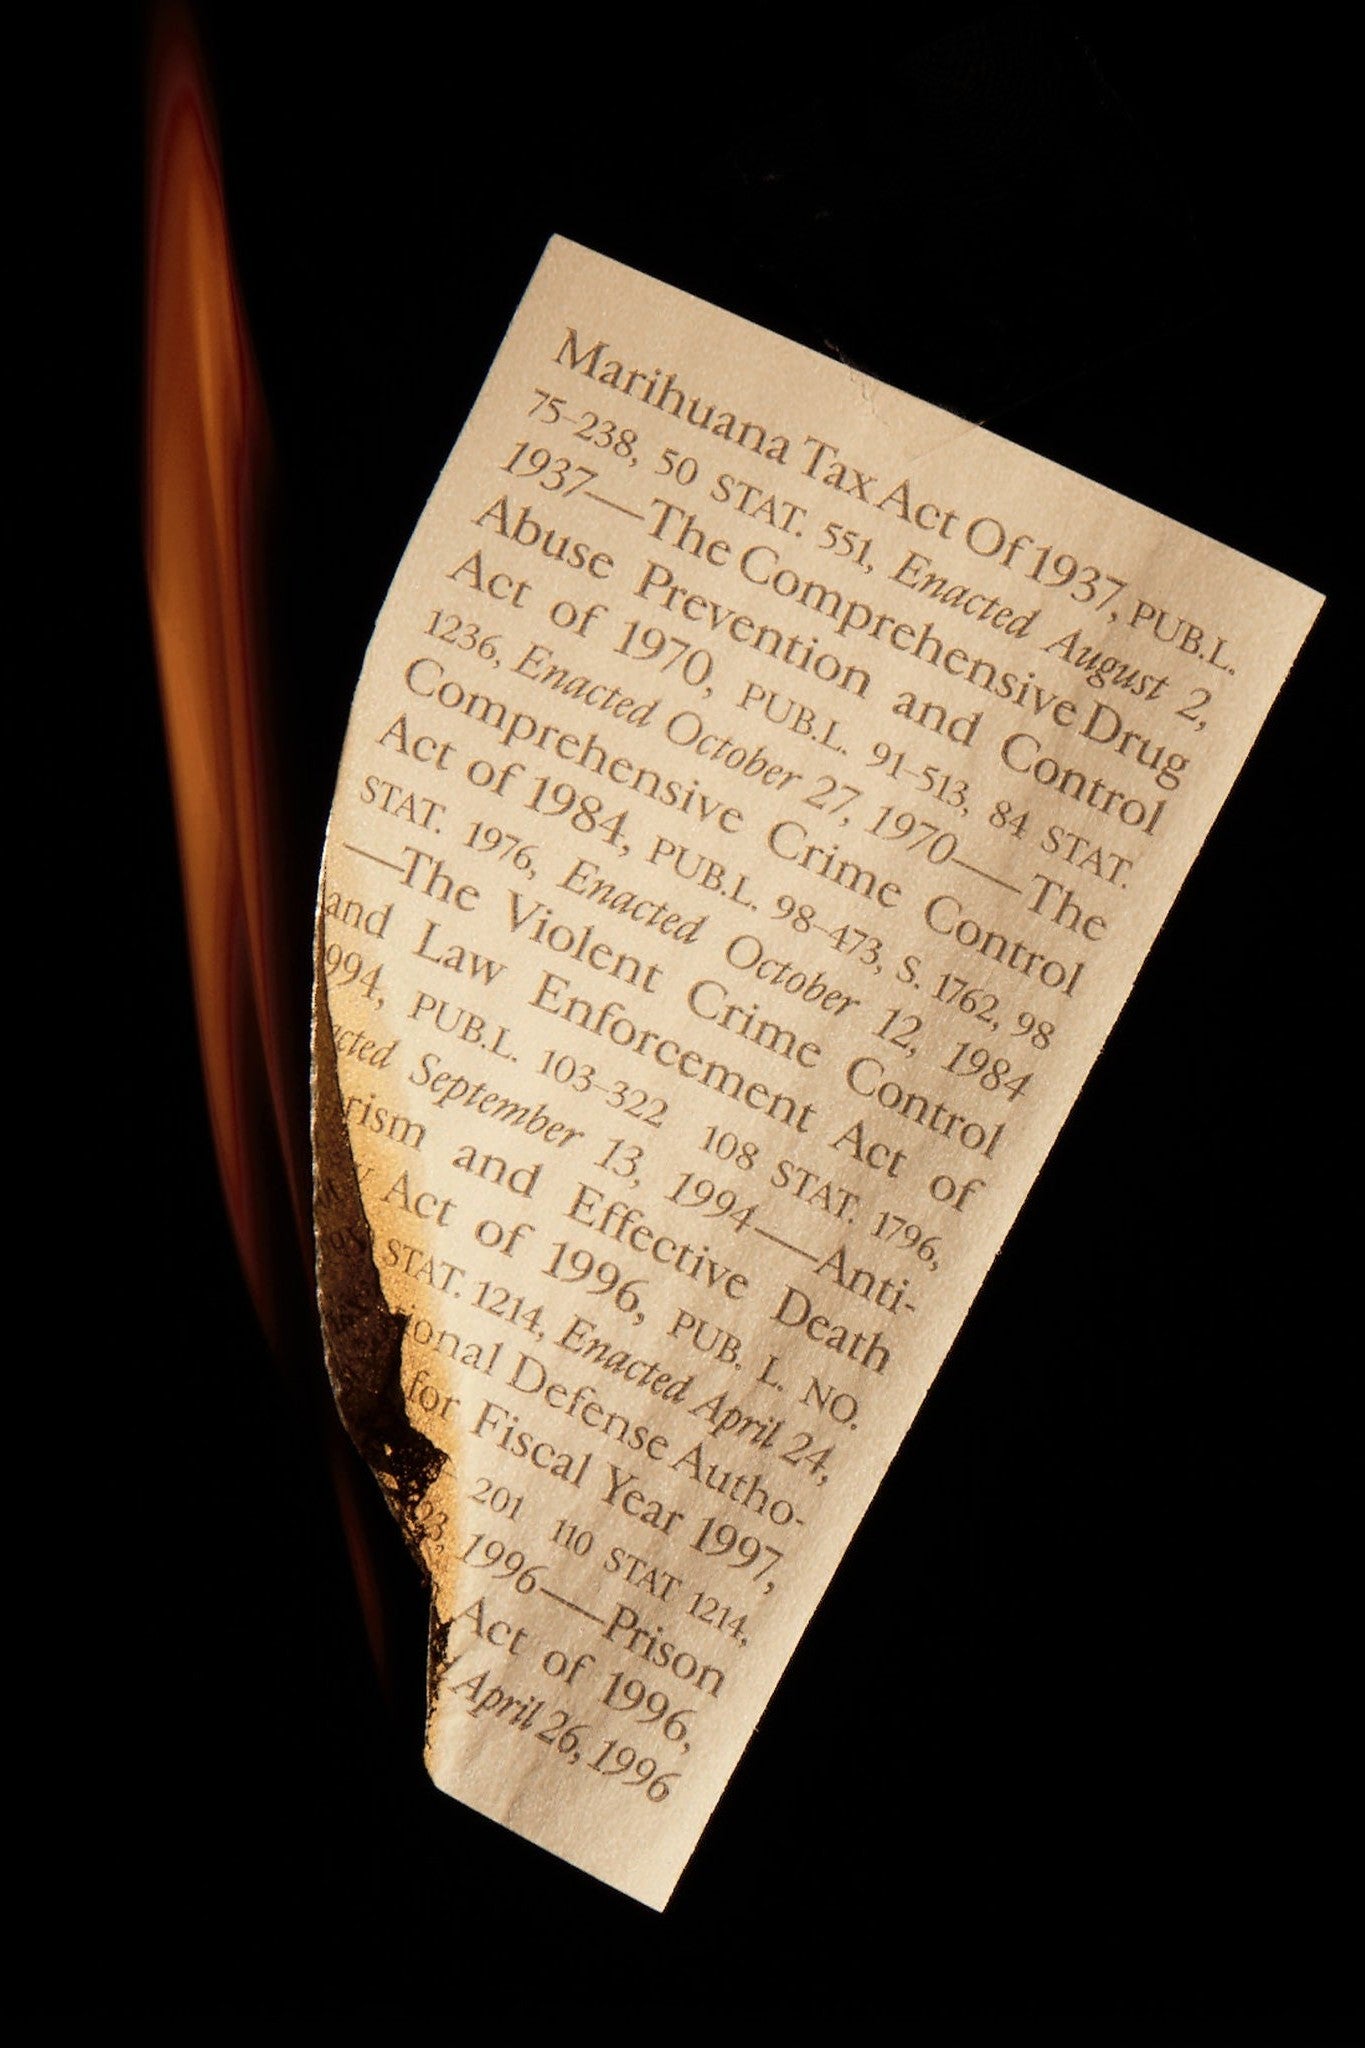 Marihuana Tax Act Of 1937, PUB.L.
75-238, 50 STAT. 551, Enacted August 2,
1937—The Comprehensive Drug
Abuse Prevention and Control
Act of 1970, PUB.L. 91-513, 84 STAT.
1236, Enacted October 27, 1970—The
Comprehensive Crime Control
Act of 1984, PUB.L. 98-473, S. 1762, 98
STAT. 1976, Enacted October 12, 1984
—The Violent Crime Control
and Law Enforcement Act of
994, PUB.L. 103-322 108 STAT. 1796,
acted September 13, 1994—Anti-
rism and Effective Death
Act of 1996, PUB. L. NO.
STAT. 1214, Enacted April 24,
ional Defense Autho-
for Fiscal Year 1997,
201 110 STAT 1214,
03, 1996—Prison
Act of 1996,
April 26, 1996